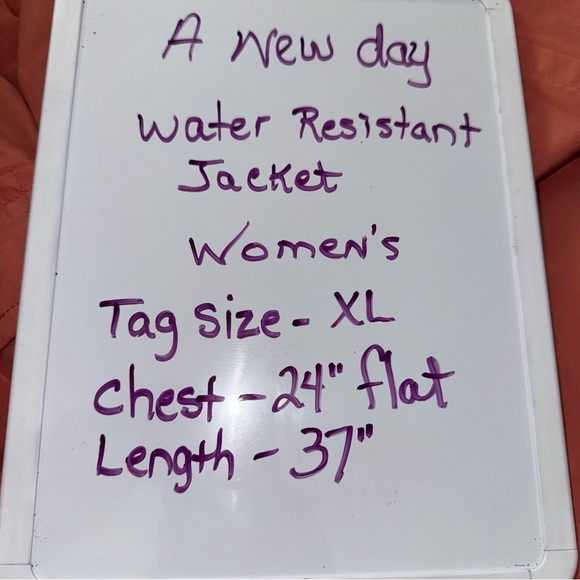 A New day
Water Resistant
Jacket
Women's
Tag Size - XL
Chest - 24" flat
Length - 37"